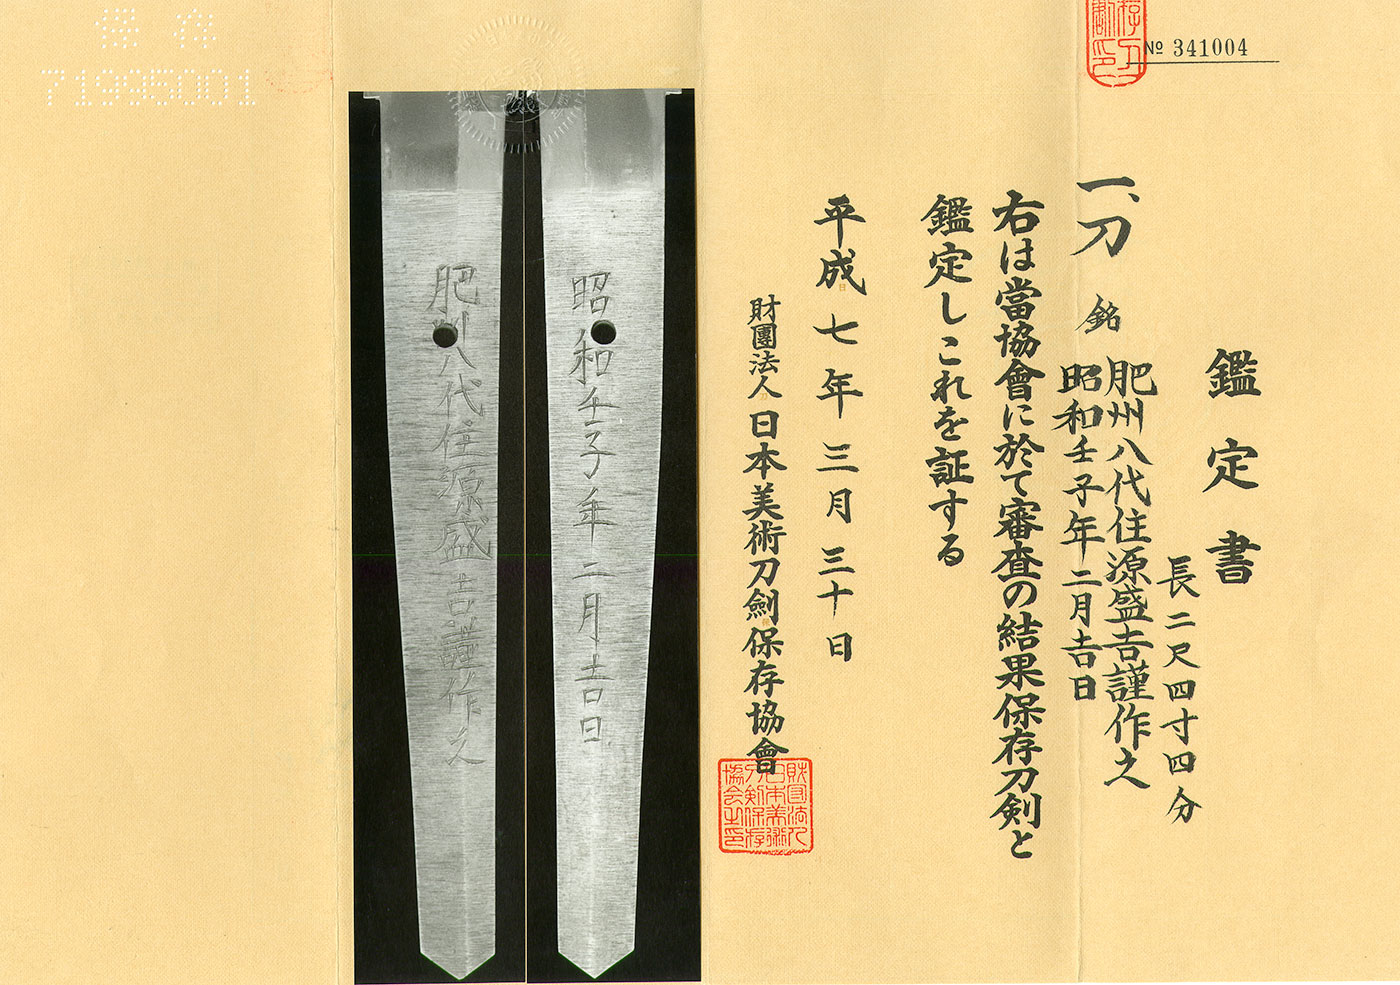 № 341004
鑑定書
一、刀
長二尺四寸四分
銘
肥州八代住源盛吉謹作之
昭和壬子年二月吉日
右は當協會に於て審査の結果保存刀剣と
鑑定しこれを証する
平成七年三月三十日
財團法人日本美術刀劍保存協會
昭和壬子年二月吉日
肥州八代住源盛吉謹作之
保存
71995001